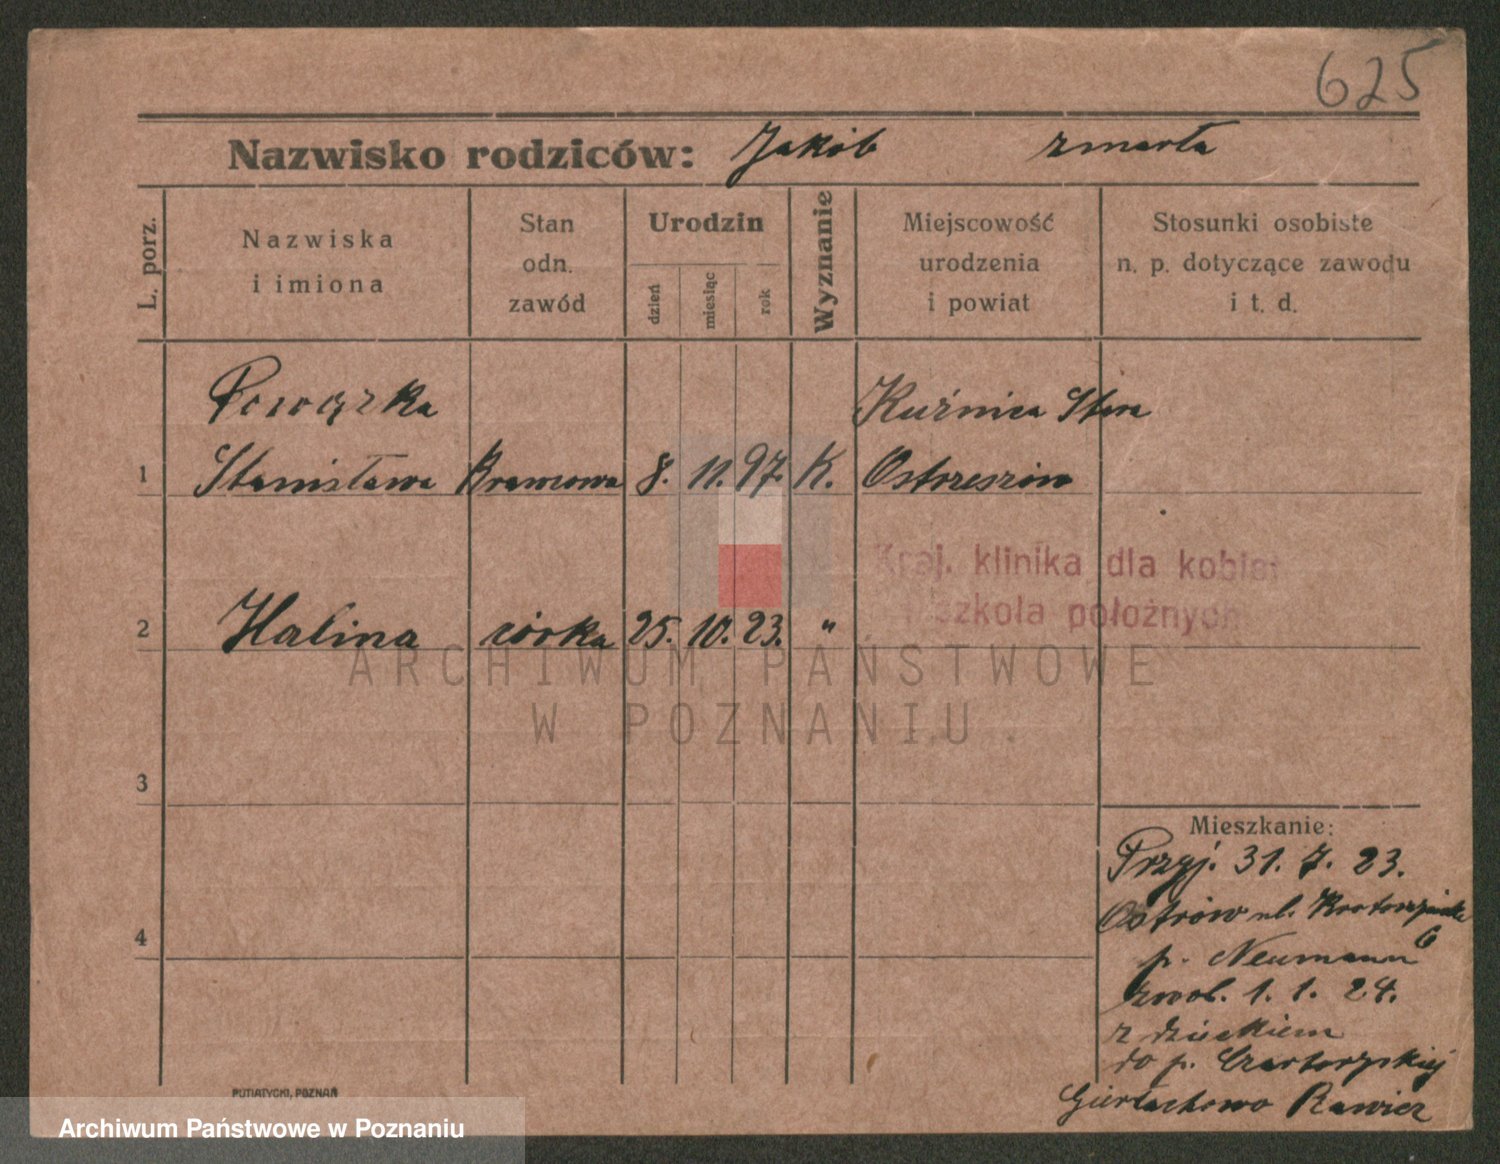 625
Nazwisko rodziców: Jakób zmarła
L. porz.
Nazwiska
i imiona
Stan
odn.
zawód
Urodzin
dzień
miesiąc
rok
Wyznanie
Miejscowość
urodzenia
i powiat
Stosunki osobiste
n. p. dotyczące zawodu
i t. d.
Powązka Kuźnica Stara
1 Stanisława 8. 11. 97. K. Ostrzeszów
Kraj. klinika dla kobiet
szkoła położnych
2 Halina córka 25. 10. 23. "
ARCHIWUM PAŃSTWOWE
W POZNANIU
3
Mieszkanie:
Przyj. 31. 7. 23.
4
Ostrów ul.
6
p. Neumann
zwol. 1. 1. 24.
z dzieckiem
do p. Czartoryskiej
Gierłachowo Rawicz
PUTIATYCKI, POZNAŃ
Archiwum Państwowe w Poznaniu